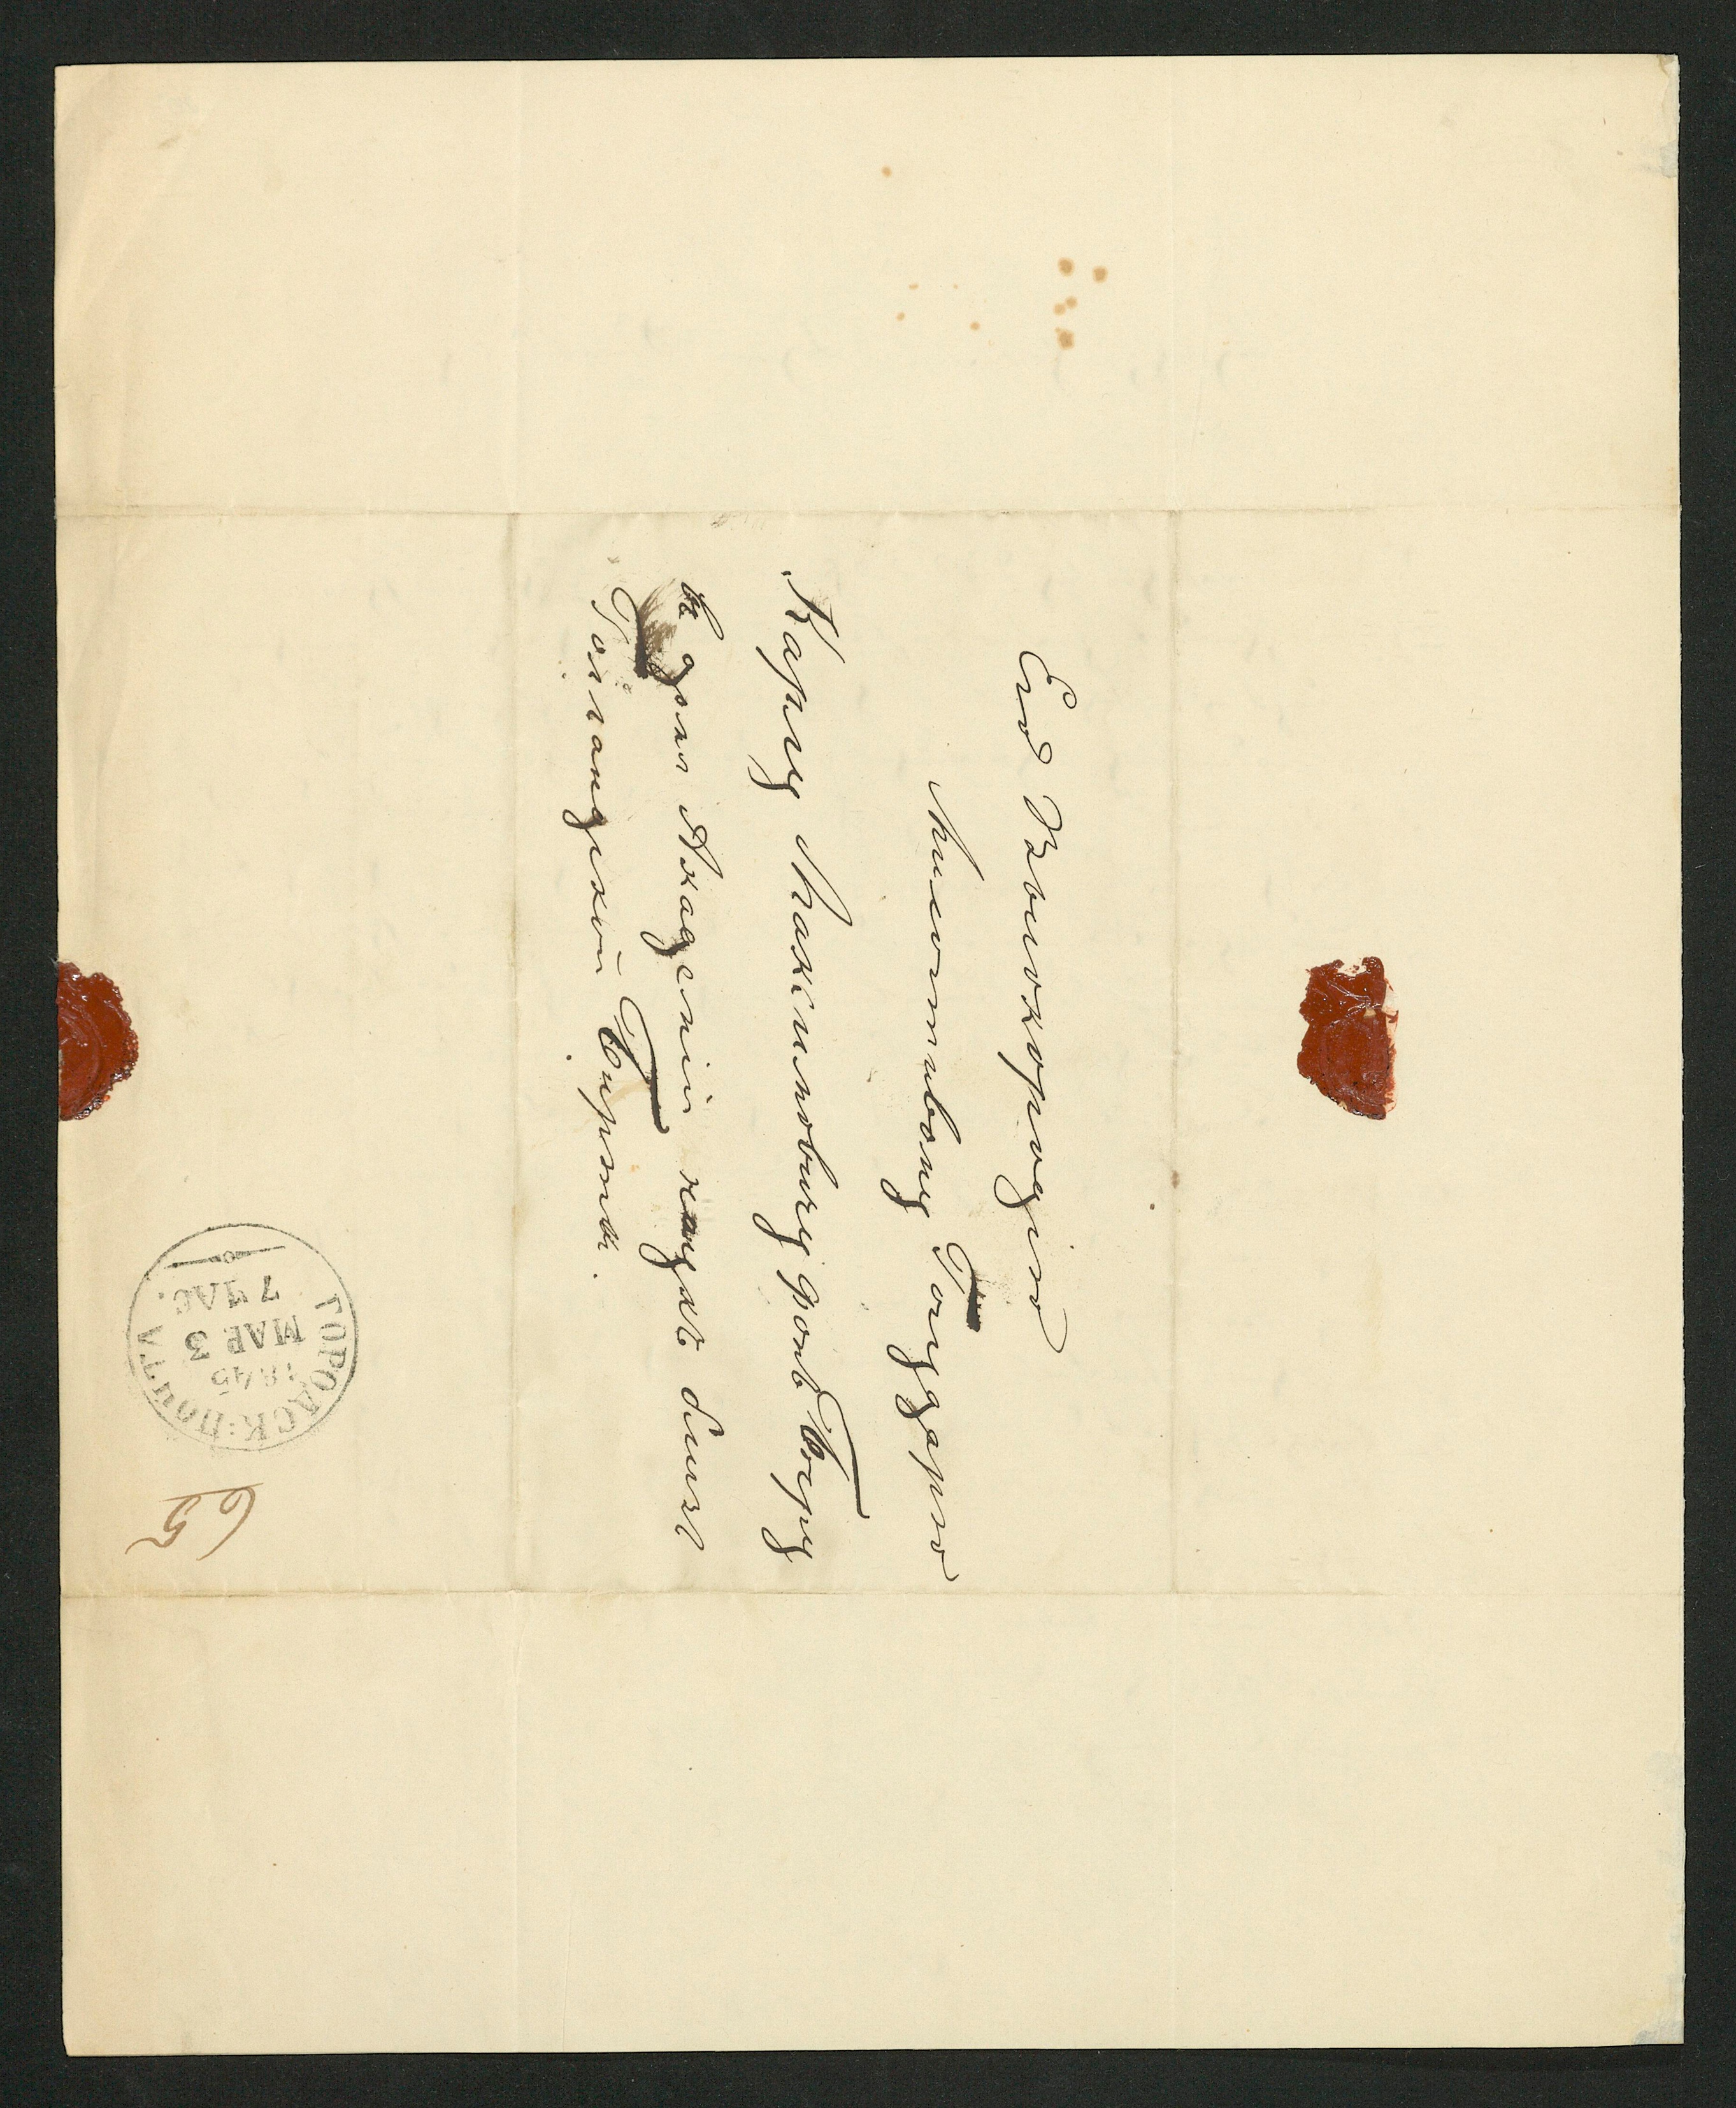 Его Высокородию
Милостивому Государю
Карлу Максимовичу фонъ Бэру
въ домѣ Академіи
Голландской Биржи.
ГОРОДСК: ПОЧТА
1845
МАР 3
7 ЧАС.
65